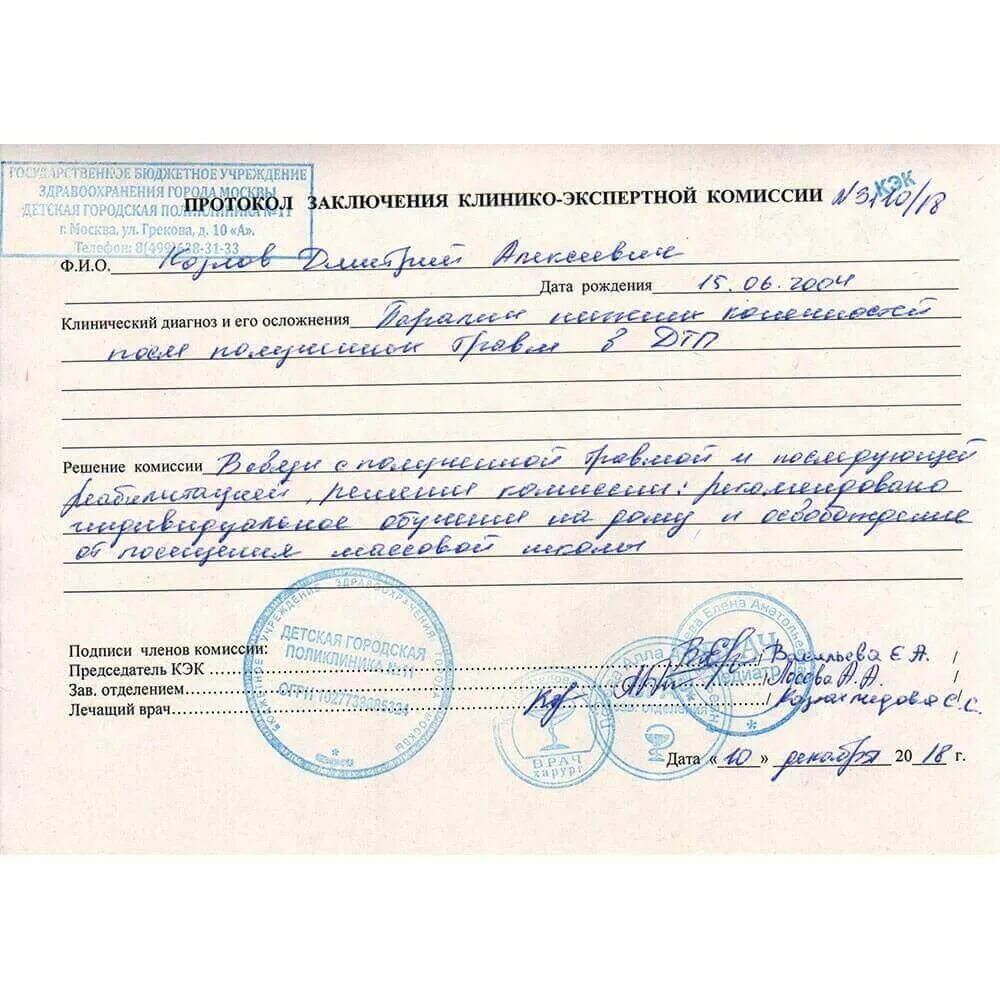 ГОСУДАРСТВЕННОЕ БЮДЖЕТНОЕ УЧРЕЖДЕНИЕ
ЗДРАВООХРАНЕНИЯ ГОРОДА МОСКВЫ
ДЕТСКАЯ ГОРОДСКАЯ ПОЛИКЛИНИКА №11
г. Москва, ул. Грекова, д. 10 «А».
Телефон: 8(499)638-31-33
ПРОТОКОЛ ЗАКЛЮЧЕНИЯ КЛИНИКО-ЭКСПЕРТНОЙ КОМИССИИ
КЭК
Ф.И.О. Козлов Дмитрий Алексеевич
Дата рождения 15.06.2004
Клинический диагноз и его осложнения Паралич нижних конечностей
после полученных травм в ДТП
Решение комиссии В связи с полученной травмой и последующей
реабилитацией, решение комиссии: рекомендовано
индивидуальное обучение на дому и освобождение
от посещения массовой школы
Подписи членов комиссии:
Председатель КЭК Васильева Е.А.
Зав. отделением Лосова А.А.
Лечащий врач С.С.
Дата «10» декабря 2018 г.
ДЕТСКАЯ ГОРОДСКАЯ
ПОЛИКЛИНИКА №11
УЧРЕЖДЕНИЕ ЗДРАВООХРАНЕНИЯ ГОРОДА МОСКВЫ
ВРАЧ
хирург
Алла
Елена Анатольевна